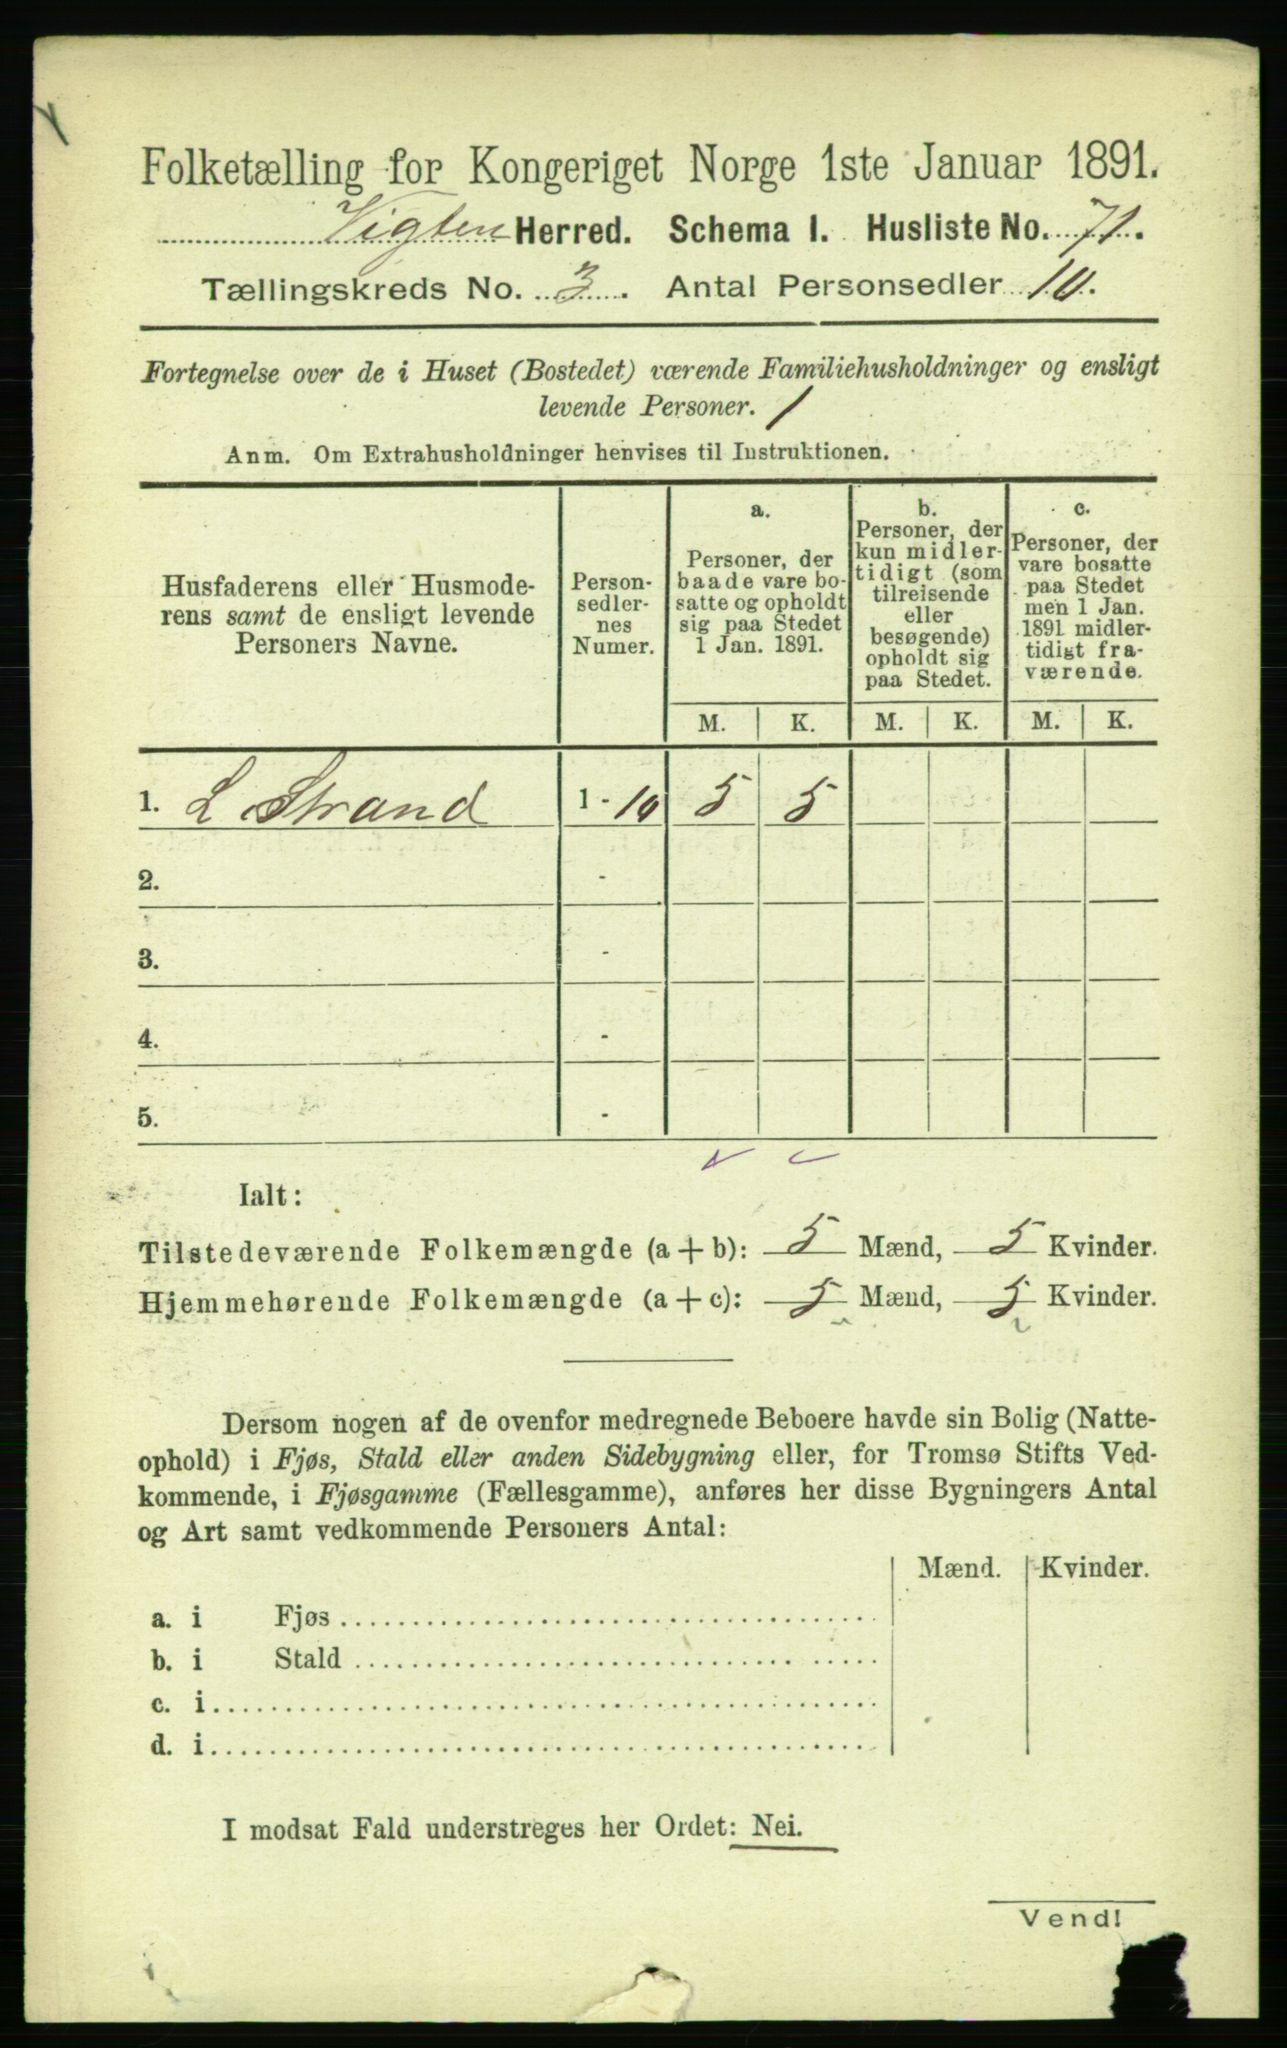 Folketælling for Kongeriget Norge 1ste Januar 1891.
Vigten Herred. Schema I. Husliste No. 71.
Tællingskreds No. 3. Antal Personsedler 10.
Fortegnelse over de i Huset (Bostedet) værende Familiehusholdninger og ensligt
levende Personer. 1
Anm. Om Extrahusholdninger henvises til Instruktionen.
Husfaderens eller Husmode-
rens samt de ensligt levende
Personers Navne.
Person-
sedler-
nes
Numer.
a.
Personer, der
baade vare bo-
satte og opholdt
sig paa Stedet
1 Jan. 1891.
b.
Personer, der
kun midler-
tidigt (som
tilreisende
eller
besøgende)
opholdt sig
paa Stedet.
c.
Personer, der
vare bosatte
paa Stedet
men 1 Jan.
1891 midler-
tidigt fra-
værende.
M. K. M. K. M. K.
1. L Strand 1 - 10 5 5
2. -
3. -
4. -
5. -
Ialt:
Tilstedeværende Folkemængde (a + b): 5 Mænd, 5 Kvinder.
Hjemmehørende Folkemængde (a + c): 5 Mænd, 5 Kvinder.
Dersom nogen af de ovenfor medregnede Beboere havde sin Bolig (Natte-
ophold) i Fjøs, Stald eller anden Sidebygning eller, for Tromsø Stifts Ved-
kommende, i Fjøsgamme (Fællesgamme), anføres her disse Bygningers Antal
og Art samt vedkommende Personers Antal:
Mænd. Kvinder.
a. i Fjøs
b. i Stald
c. i
d. i
I modsat Fald understreges her Ordet: Nei.
Vend!